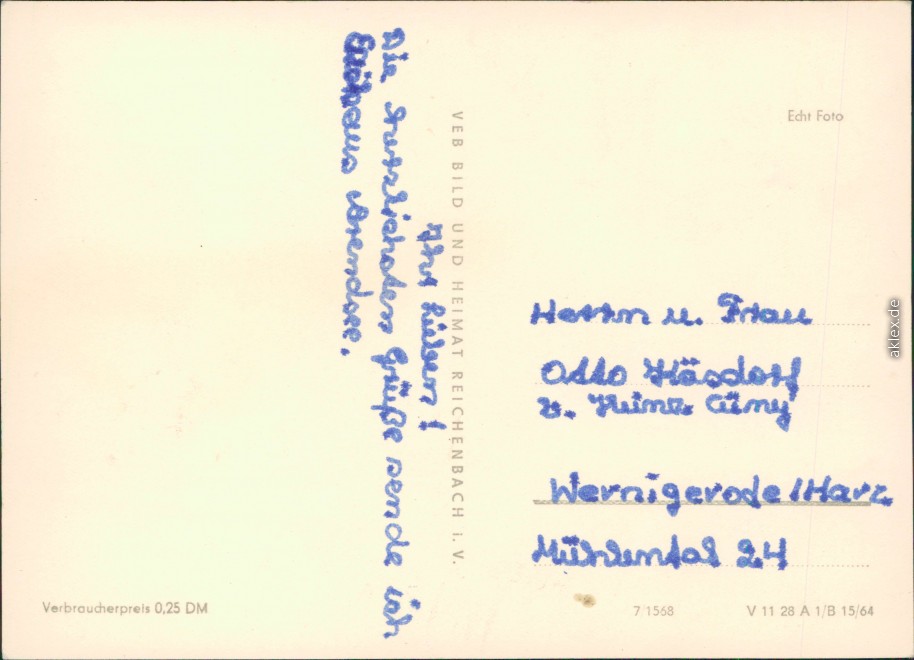 Ihr Lieben!
Die herzlichsten Grüße sende ich
Euch aus Arendsee.
VEB BILD UND HEIMAT REICHENBACH i. V.
Echt Foto
Herrn u. Frau
Otto Käsdorf
u. Heinz
Wernigerode/Harz
Mühlental 24
Verbraucherpreis 0,25 DM
7 1568
V 11 28 A 1/B 15/64
aklex.de